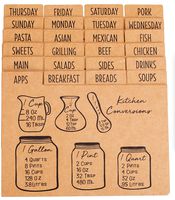 THURSDAY FRIDAY PORK
SUNDAY MONDAY TUESDAY WEDNESDAY
PASTA ASIAN MEXICAN FISH
SWEETS GRILLING BEEF CHICKEN
MAIN SALADS SIDES DRINKS
APPS BREAKFAST BREADS SOUPS
Kitchen
Conversions
1 Cup
8 OZ
16 TBL
240 ML
1 Gallon
4 Quarts
8 Pints
16 Cups
128 OZ
3.8 Litres
1 Pint
2 Cups
16 OZ
32 TBL
480 ML
1 Quart
2 Pints
4 Cups
32 OZ
.95 Litres